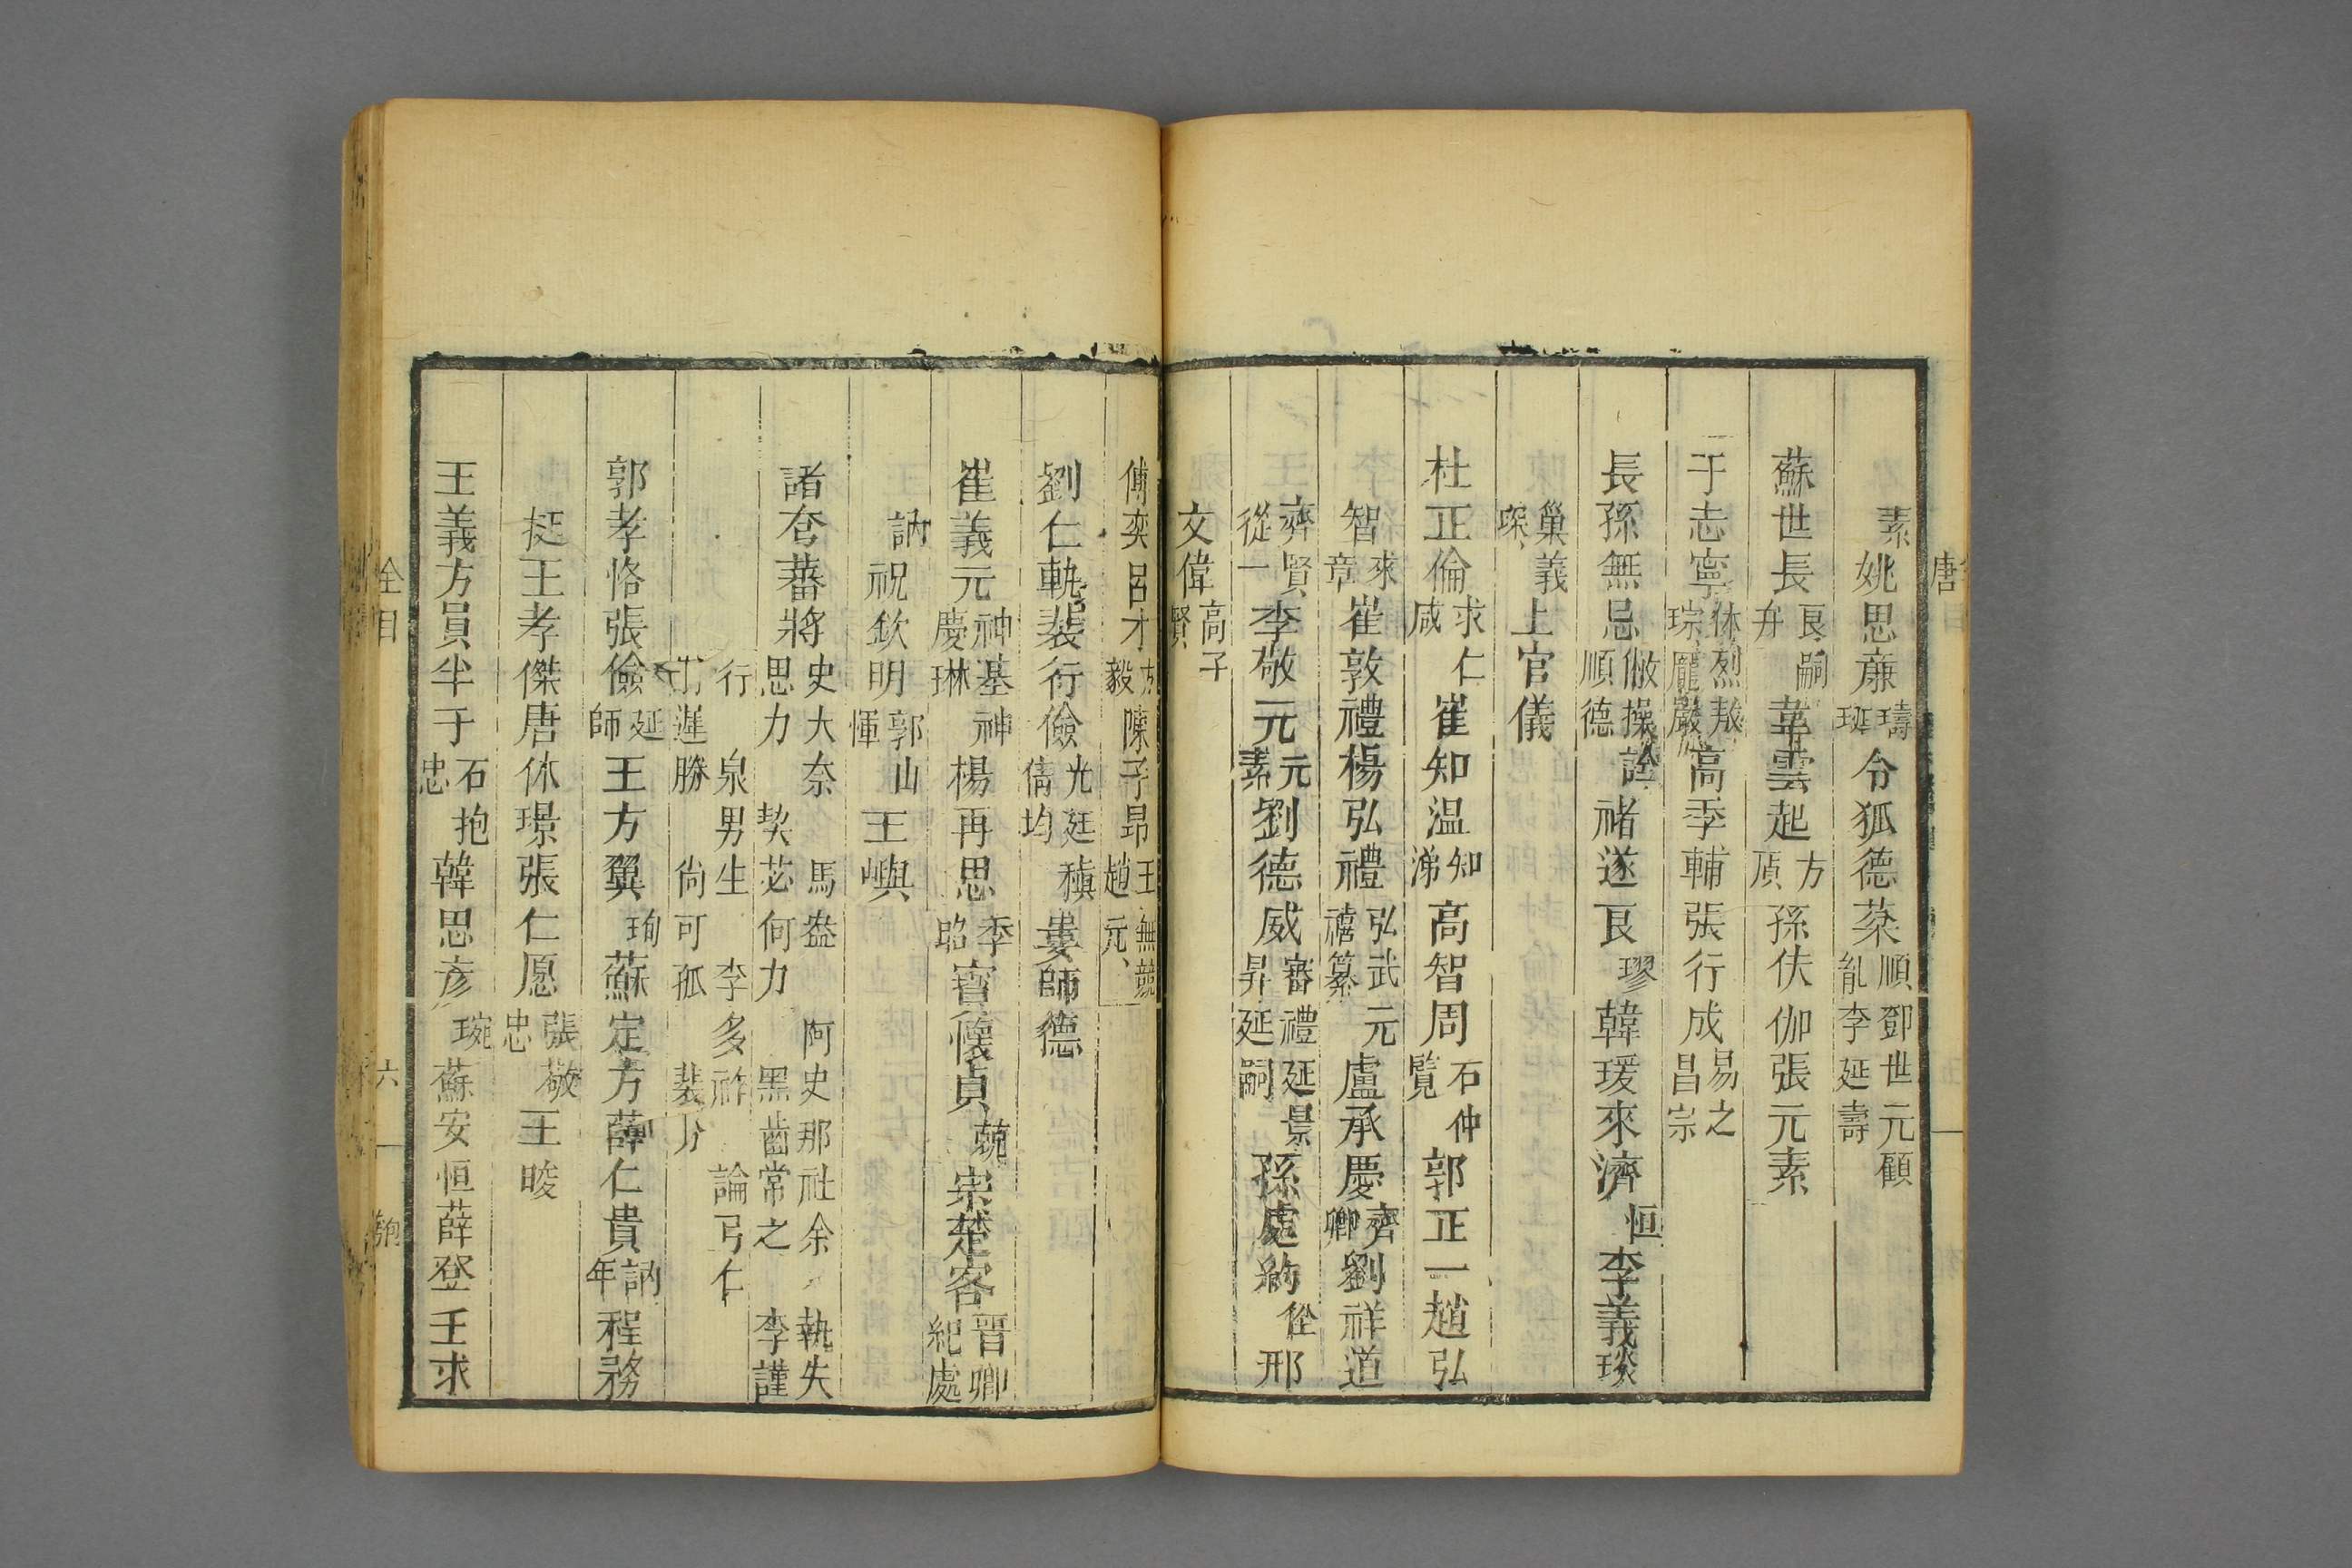 素姚思廉璹珽令狐德棻順鄧世元顧胤李延壽
蘇世長良嗣弁韋雲起方頂孫伏伽張元素
于志寧休烈敖琮龐嚴高季輔張行成易之昌宗
長孫無忌敞操詮順德禇遂良璆韓瑗來濟恒李義琰
巢義琛上官儀
杜正倫求仁咸崔知温知浟高智周石仲覽郭正一趙弘
智來章崔敦禮楊弘禮弘武元禧纂盧承慶齊卿劉祥道
齊賢從一李敬元元素劉德威審禮延景昇延嗣孫處約佺邢
文偉高子賢
傅奕呂才毅陳子昂王無競趙元
劉仁軌裴行儉光廷稹倩均婁師德
崔義元神基神慶琳楊再思季昭竇懷貞兢宗楚客晉卿紀處
訥祝欽明郭山惲王嶼
諸夷蕃將史大奈馬盎阿史那社尒執失思力契苾何力黑齒常之李謹
行泉男生李多祚論弓仁遲勝尚可孤裴玢
郭孝恪張儉延師王方翼珣蘇定方薛仁貴訥年程務
挺王孝傑唐休璟張仁愿張敬忠王晙
王義方員半千石抱忠韓思彥琬蘇安恒薛登王求
全目
六
唐